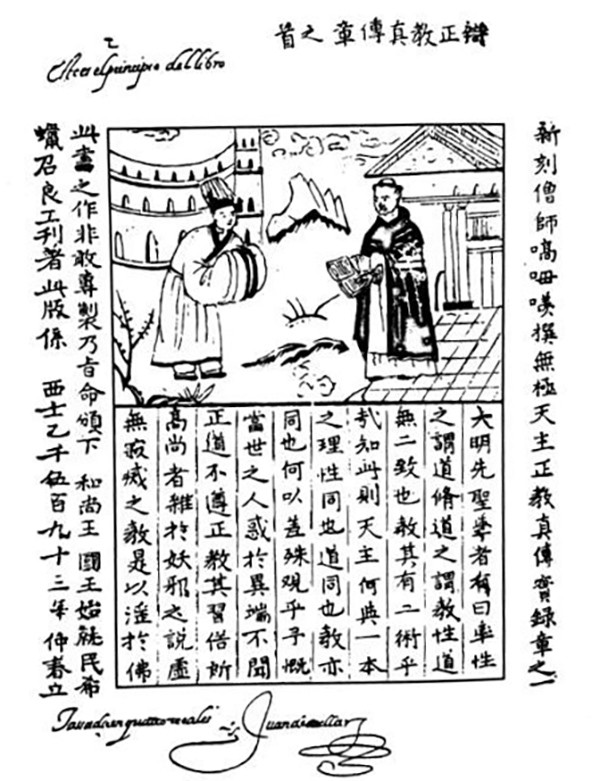 辯正教真傳章之首
Aca es el principio del libro
新刻僧師嗃呣撰無極天主正教真傳實錄章之一
大明先聖學者稱曰率性
之謂道脩道之謂教性道
無二致也教其有二術乎
哉知此則天主何與一本
之理性同也道同也教亦
同也何以差殊觀乎予慨
當世之人惑於異端不聞
正道不遵正教其習俗所
高尚者雜於妖邪之說虛
無寂滅之教是以淫於佛
此書之作非敢專製乃旨命頒下 和尚王 國王始就民希
蠟召良工刊著此版係 西士乙千伍百九十三年仲春立
Tassada en quatro reales
Juan de cuellar